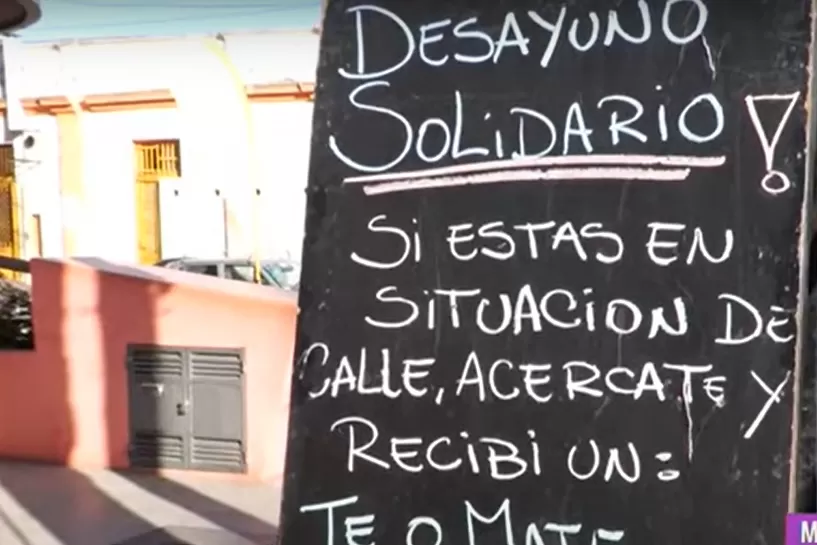 DESAYUNO
SOLiDARIO!
Si ESTAS EN
SiTUACiON DE
CALLE, ACERCATE Y
RECiBi UN:
TE O MATE
M